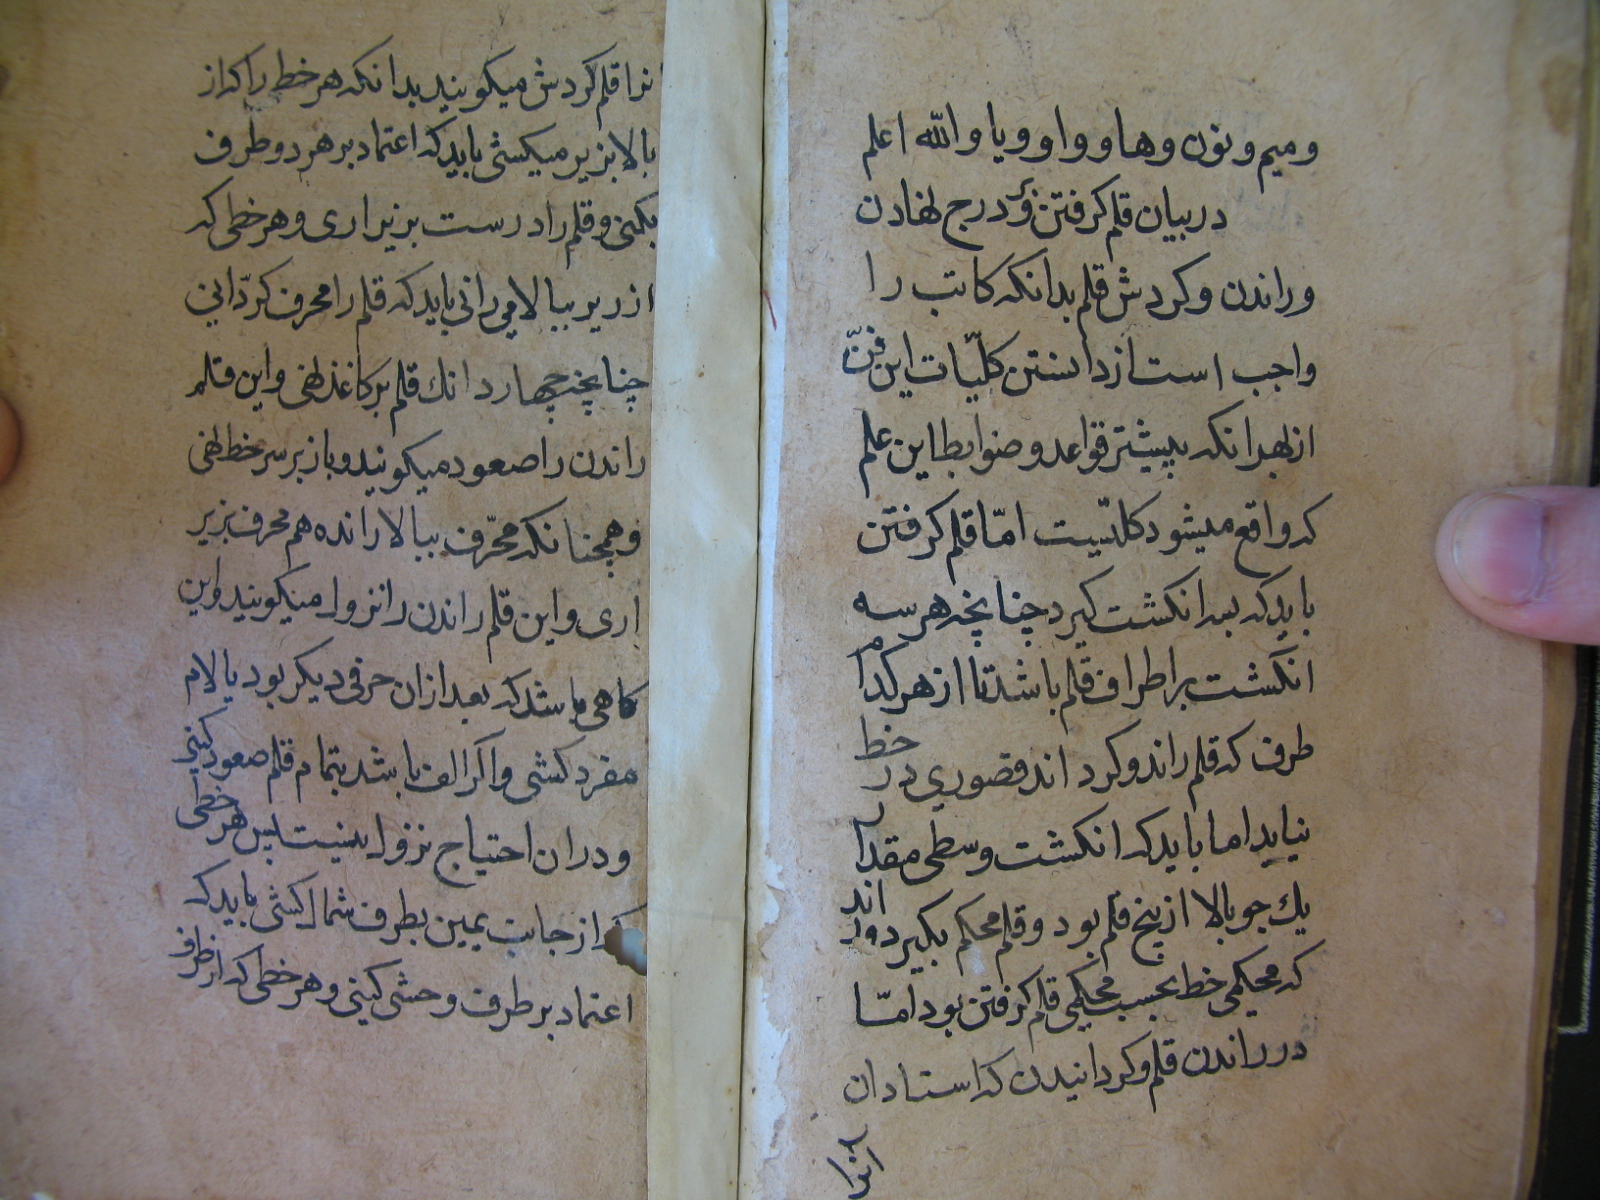 و میم و نون و ها و واو و یا والله اعلم
در بیان قلم کرفتن و درج نهادن
و راندن و کردش قلم بدانکه کاتب را
واجب است از دانستن کلیّات این فنّ
از بهر انکه بیشتر قواعد و ضوابط این علم
که واقع میشود کلّیست امّا قلم کرفتن
باید که بسه انکشت کیرد چنانچه هر سه
انکشت بر اطراف قلم باشد تا از هر کدام
طرف که قلم راند و کرداند قصوری در خط
نیاید اما باید که انکشت وسطی مقدار
یک جو بالا از بیخ قلم بود و قلم محکم بکیرد
که محکمی خط بحسب محکمی قلم کرفتن بود امّا
در راندن قلم و کردانیدن که استادان
آنرا
انرا قلم کردش میکویند بدانکه هر خط را که از
بالا بزیر میکشی باید که اعتماد بر هر دو طرف
بکنی و قلم را درست بزیر اری و هر خطی که
از زیر ببالا می رانی باید که قلم را محرف کردانی
چنانچه چهار دانک قلم بر کاغذ نهی و این قلم
راندن را صعود میکویند و باز بر سر خط نهی
و همچنانکه محرّف ببالا رانده هم محرف بزیر
اری و این قلم راندن را نزول میکویند و این
کاهی باشد که بعد از ان حرفی دیکر بود یا لام
مفرد کشی و اکر الف باشد بتمام قلم صعود کنی
و در ان احتیاج نزول نیست پس هر خطی
که از جانب یمین بطرف شمال کشی باید که
اعتماد بر طرف وحشی کنی و هر خطی که از طرف